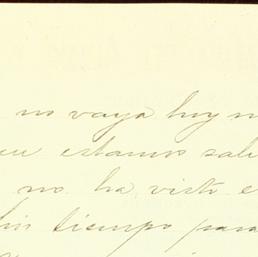 no vaya hoy
estamos
no ha visto e
tiempo para